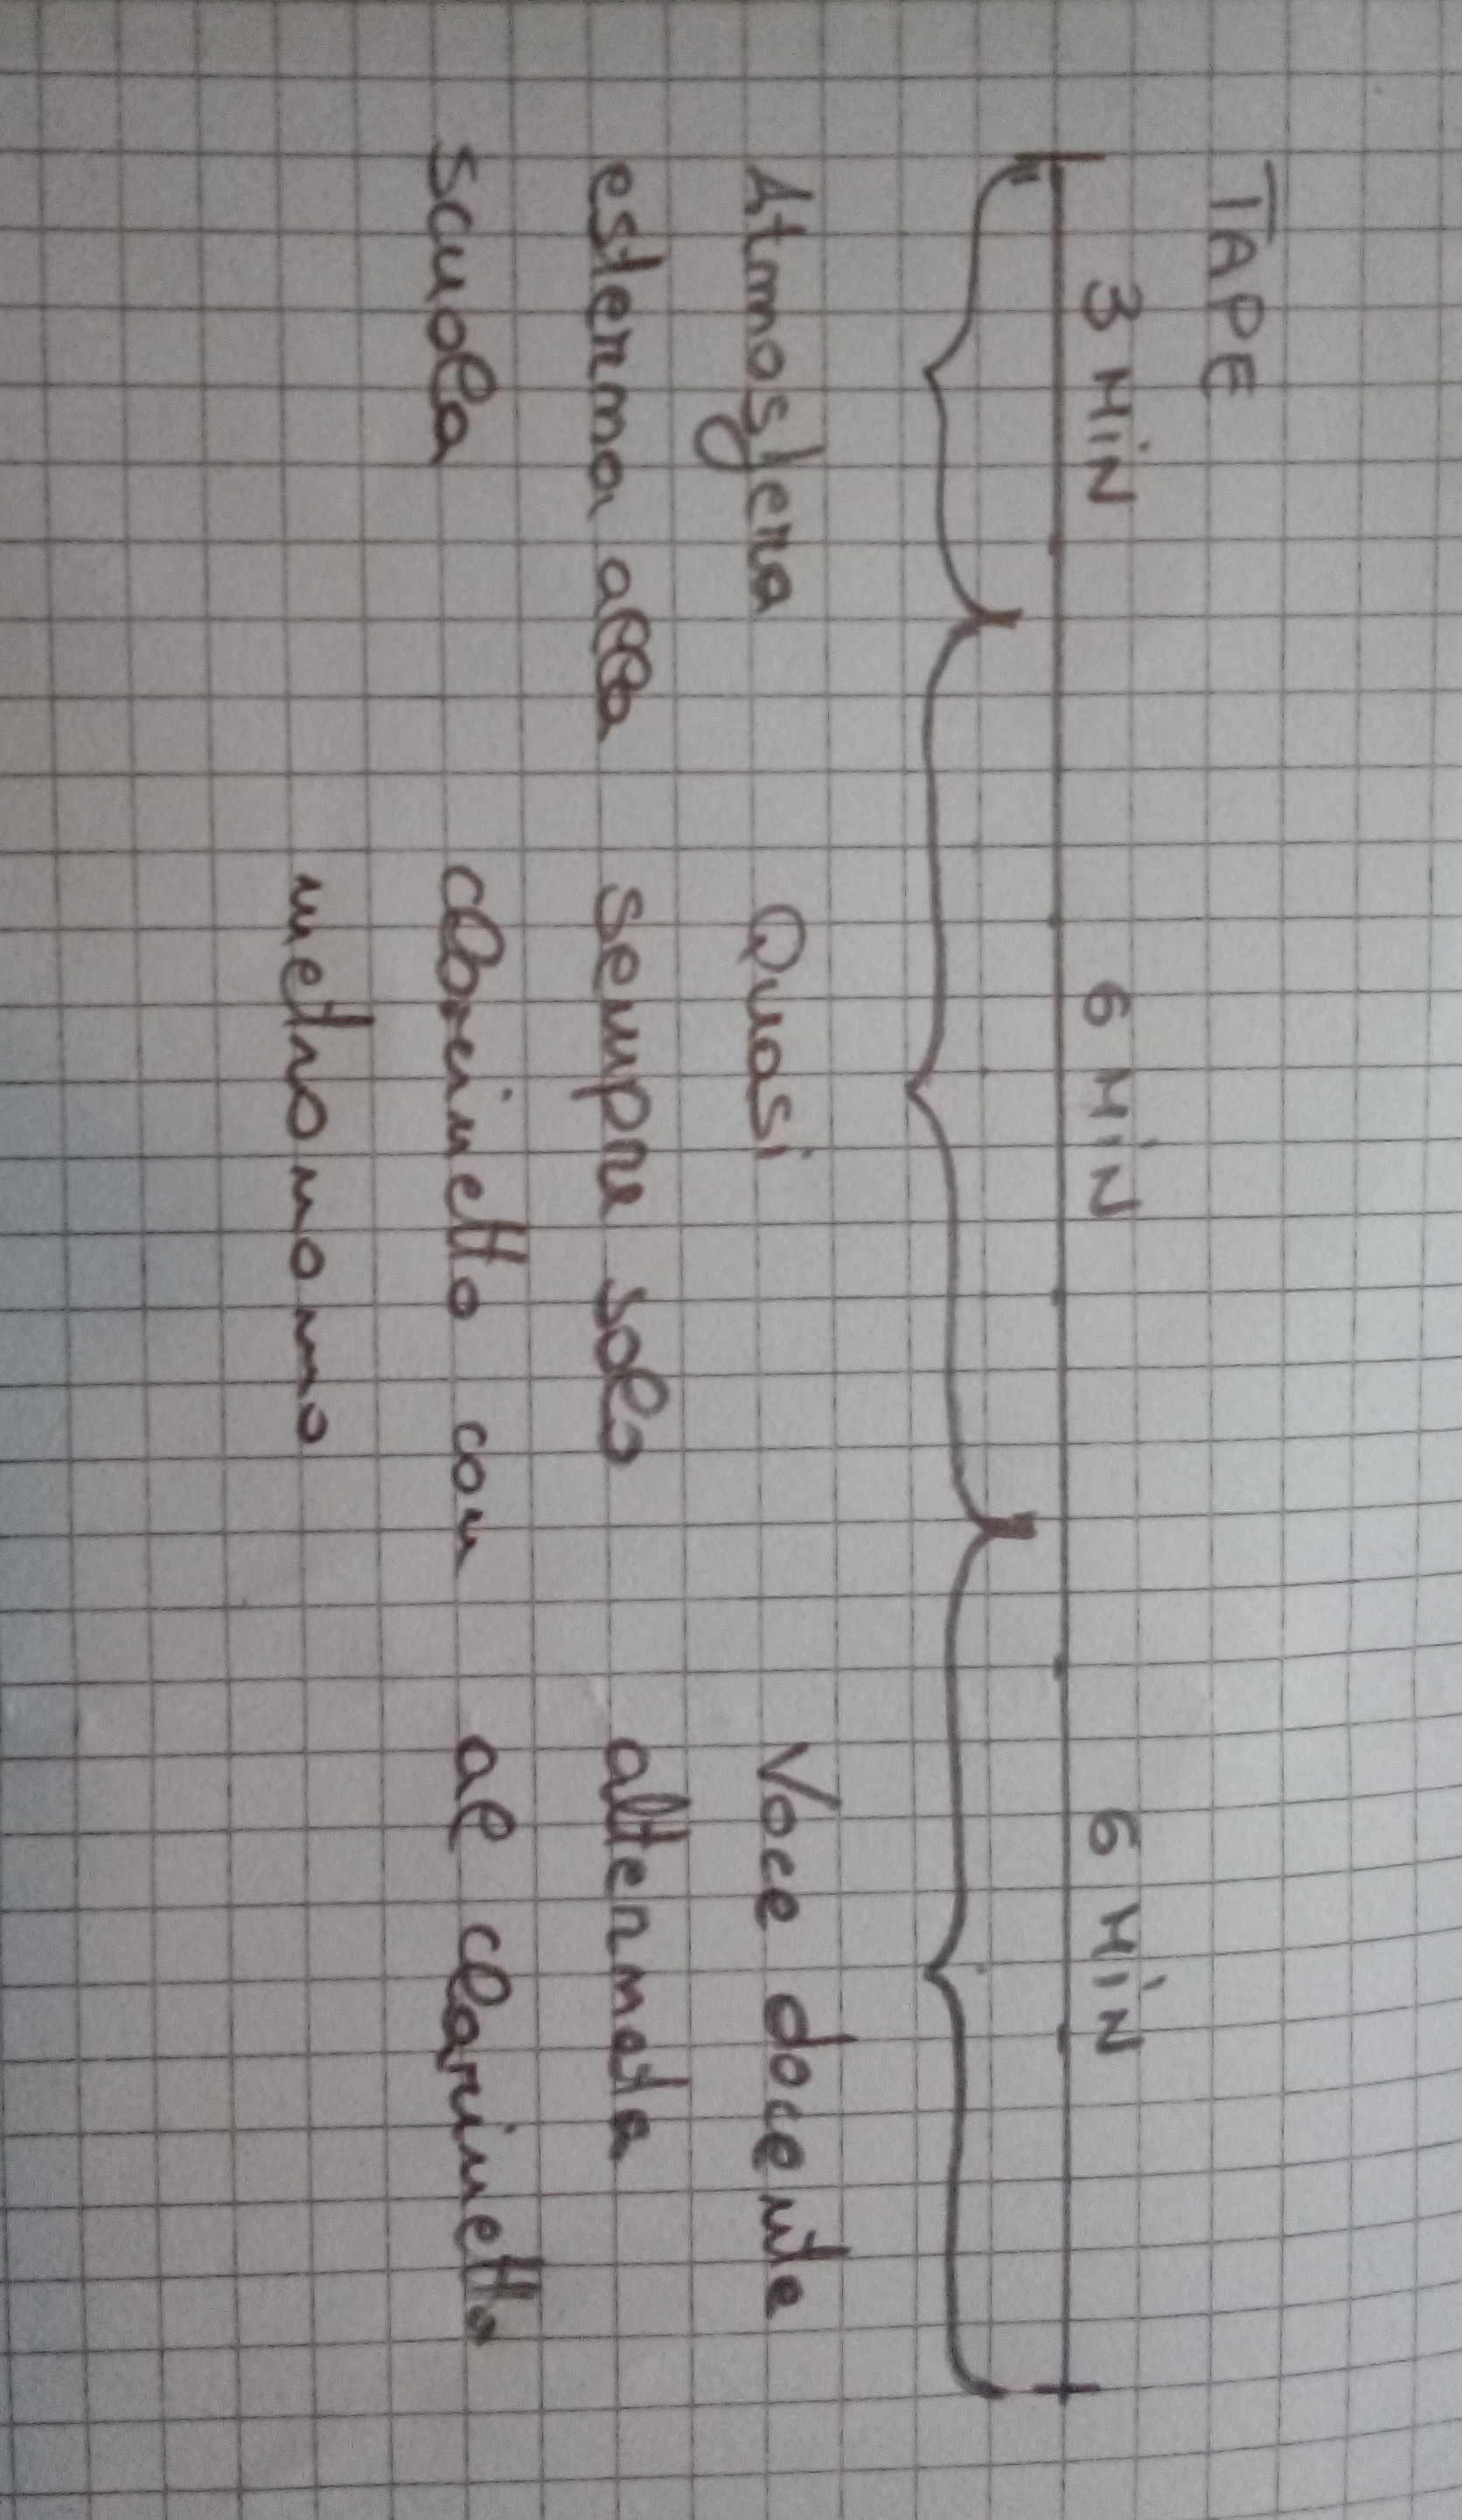 TAPE
3 MIN 6 MIN 6 MIN
Atmosfera
esterna alla
scuola
Quasi
sempre solo
clarinetto con
metronomo
Voce docente
alternata
al clarinetto